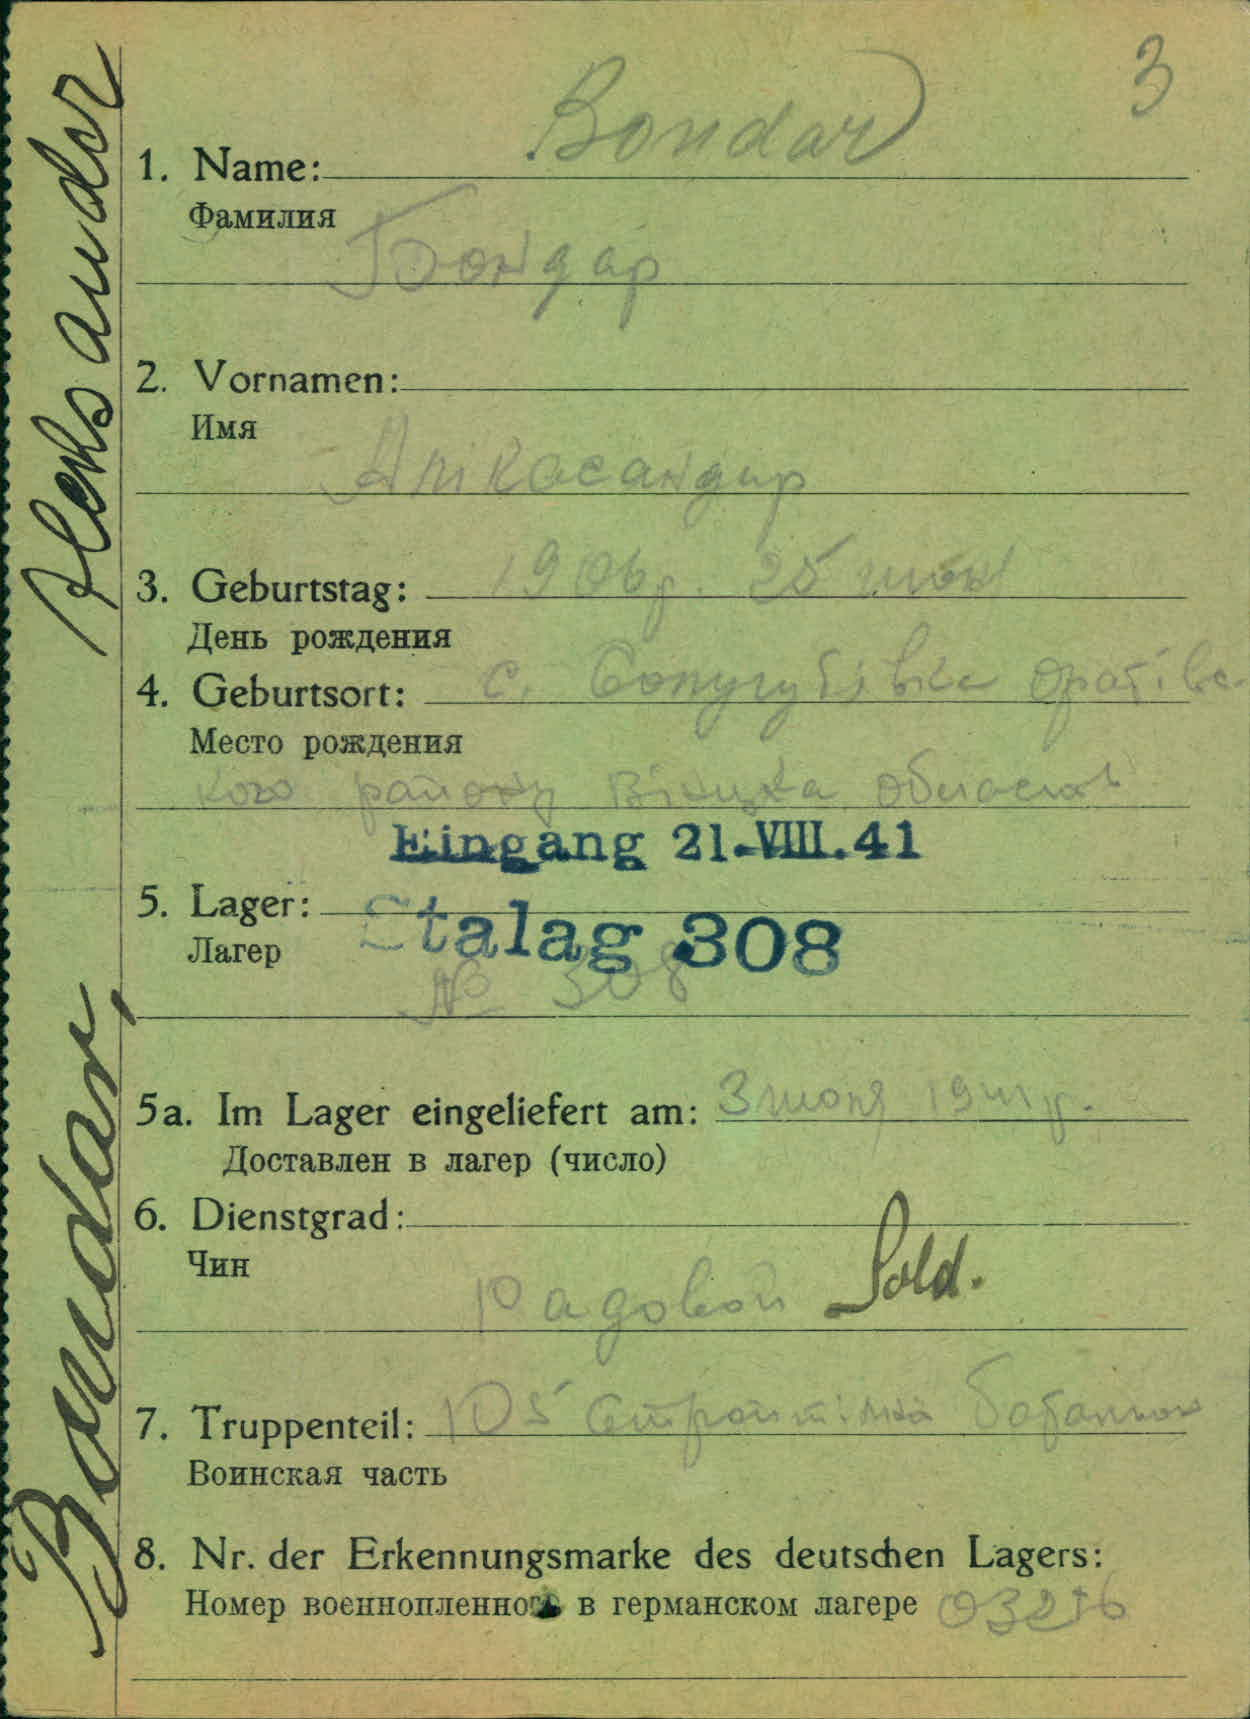 3
Bondar
1. Name:
Фамилия
Бондар
2. Vornamen:
Имя
3. Geburtstag: 1906 р. 25
День рождения
4. Geburtsort: с.
Место рождения
кого району області
Eingang 21.VIII.41
5. Lager: Stalag 308
Лагер
№ 308
5a. Im Lager eingeliefert am: 3 1941 р.
Доставлен в лагер (число)
6. Dienstgrad:
Чин
Радовой Sold.
7. Truppenteil: 105
Воинская часть
8. Nr. der Erkennungsmarke des deutschen Lagers:
Номер военнопленного в германском лагере
Bondar, Aleksander